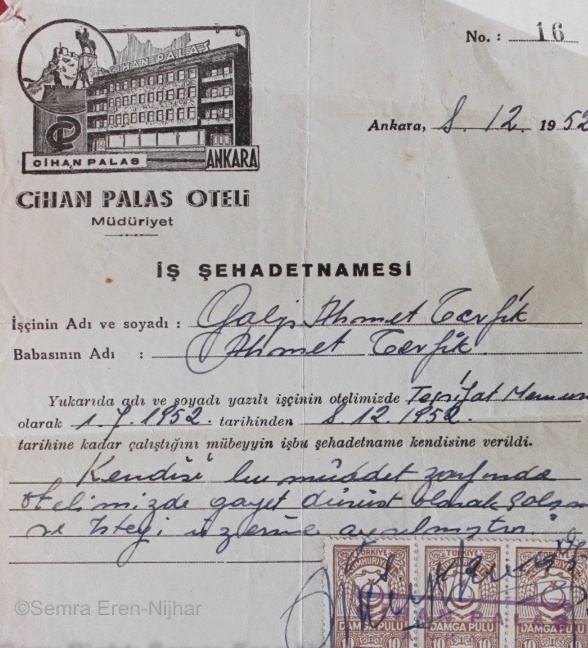 No. : 16
CİHAN PALAS
Ankara, 8. 12. 1952
CİHAN PALAS
ANKARA
CİHAN PALAS OTELİ
Müdüriyet
İŞ ŞEHADETNAMESİ
İşçinin Adı ve soyadı : Galip Ahmet Tevfik
Babasının Adı : Ahmet Tevfik.
Yukarıda adı ve soyadı yazılı işçinin otelimizde Teşrifat Memuru
olarak 1.7.1952. tarihinden 8.12.1952.
tarihine kadar çalıştığını mübeyyin işbu şehadetname kendisine verildi.
Kendisi bu müddet zarfında
otelimizde gayet dürüst olarak çalışmış
ve isteği üzerine ayrılmıştır.
TÜRKİYE CUMHURİYETİ TÜRKİYE CUMHURİYETİ
DAMGA PULU DAMGA PULU DAMGA PULU
10 10 10 10 10
©Semra Eren-Nijhar